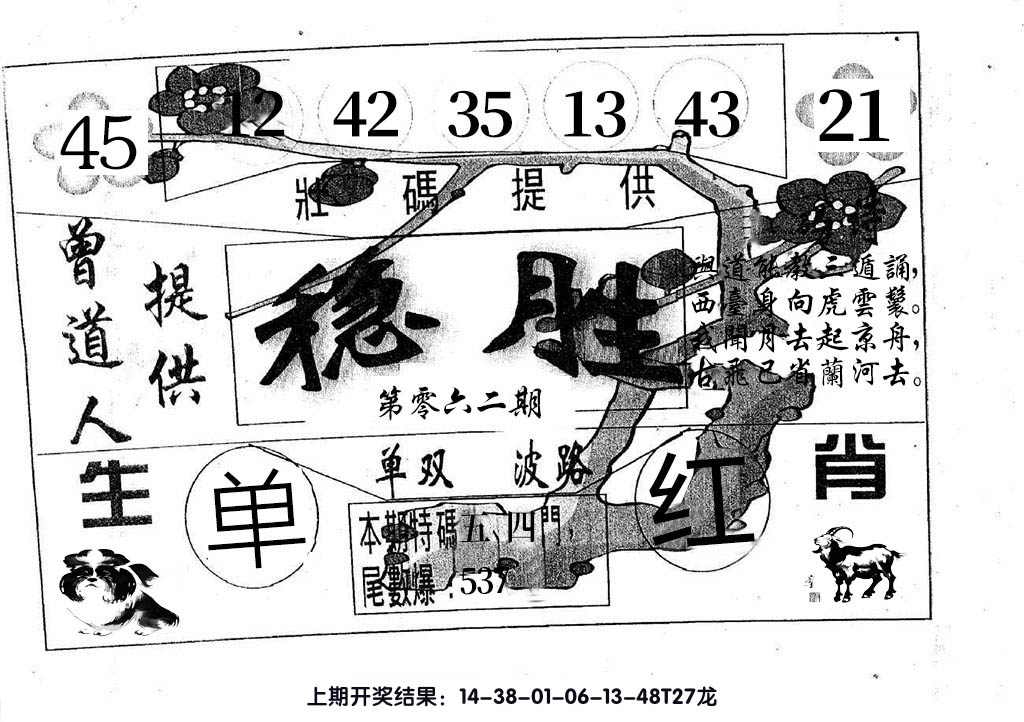 45 12 42 35 13 43 21
壯碼提供
特
曾道人
提供
稳胜
第零六二期
與道能教三遁誦，
西臺身向虎雲鬟。
我聞月去起京舟，
古飛已省蘭河去。
生
肖
单双 波路
单
红
本期特碼五、四門，
尾數爆：537
上期开奖结果：14-38-01-06-13-48T27龙